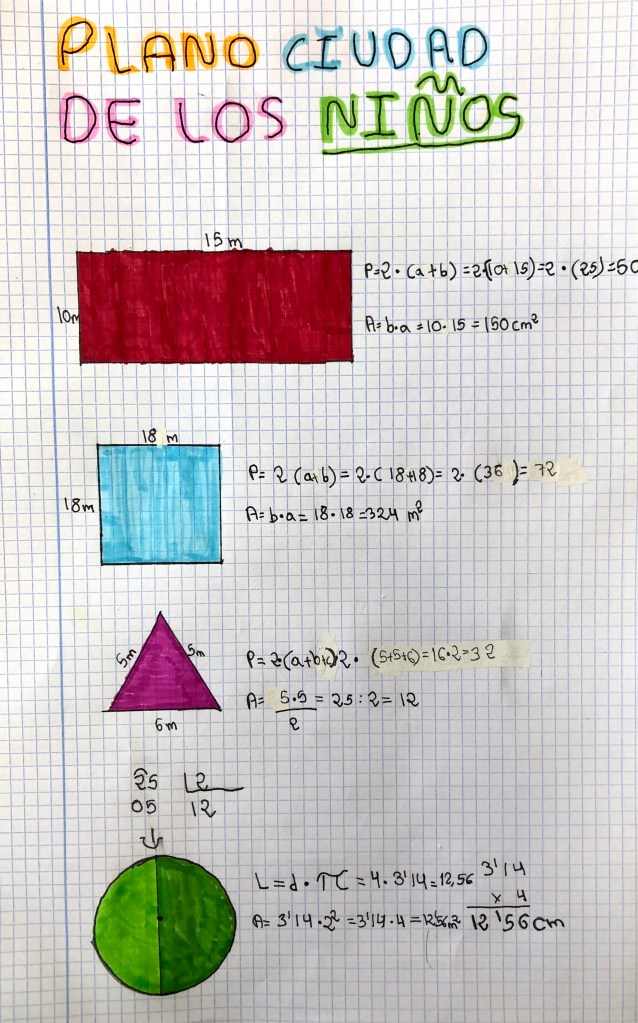 PLANO CIUDAD
DE LOS NIÑOS
15 m
10m
P=2·(a+b)=2·(10+15)=2·(25)=50
A=b·a=10·15=150cm²
18 m
18m
P=2(a+b)=2·(18+18)=2·(36)=72
A=b·a=18·18=324 m²
5m
5m
6m
P=2·(a+b+c)2·(5+5+6)=16·2=32
A= 5·5/2 = 25:2=12
25 2
05 12
L=d·π=4·3'14=12,56
A=3'14·2²=3'14·4=12'56m²
3'14
x 4
12'56cm